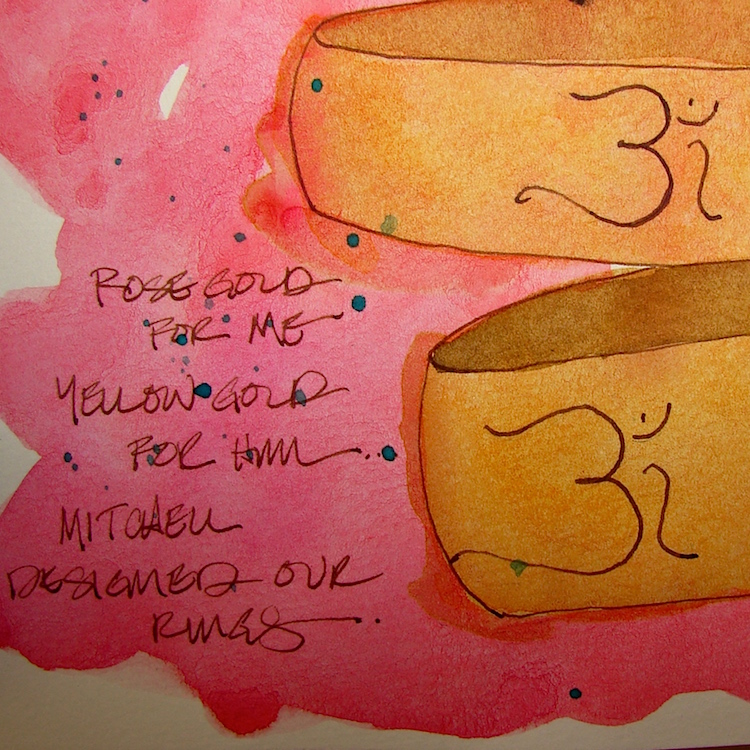 ॐ
ROSE GOLD
FOR ME
YELLOW GOLD
FOR HIM..
ॐ
MITCHELL
DESIGNED OUR
RINGS.